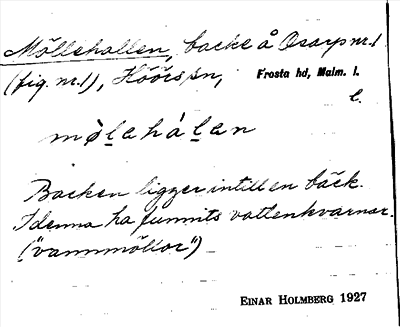 Möllehallen, backe å Osarp nr. 1
(fig. nr. 1), Höörs sn, Frosta hd, Malm. l.
l.
møl̲ehál̲en
Backen ligger intill en bäck.
I denna ha funnits vattenkvarnar.
("vannmöllor")
EINAR HOLMBERG 1927